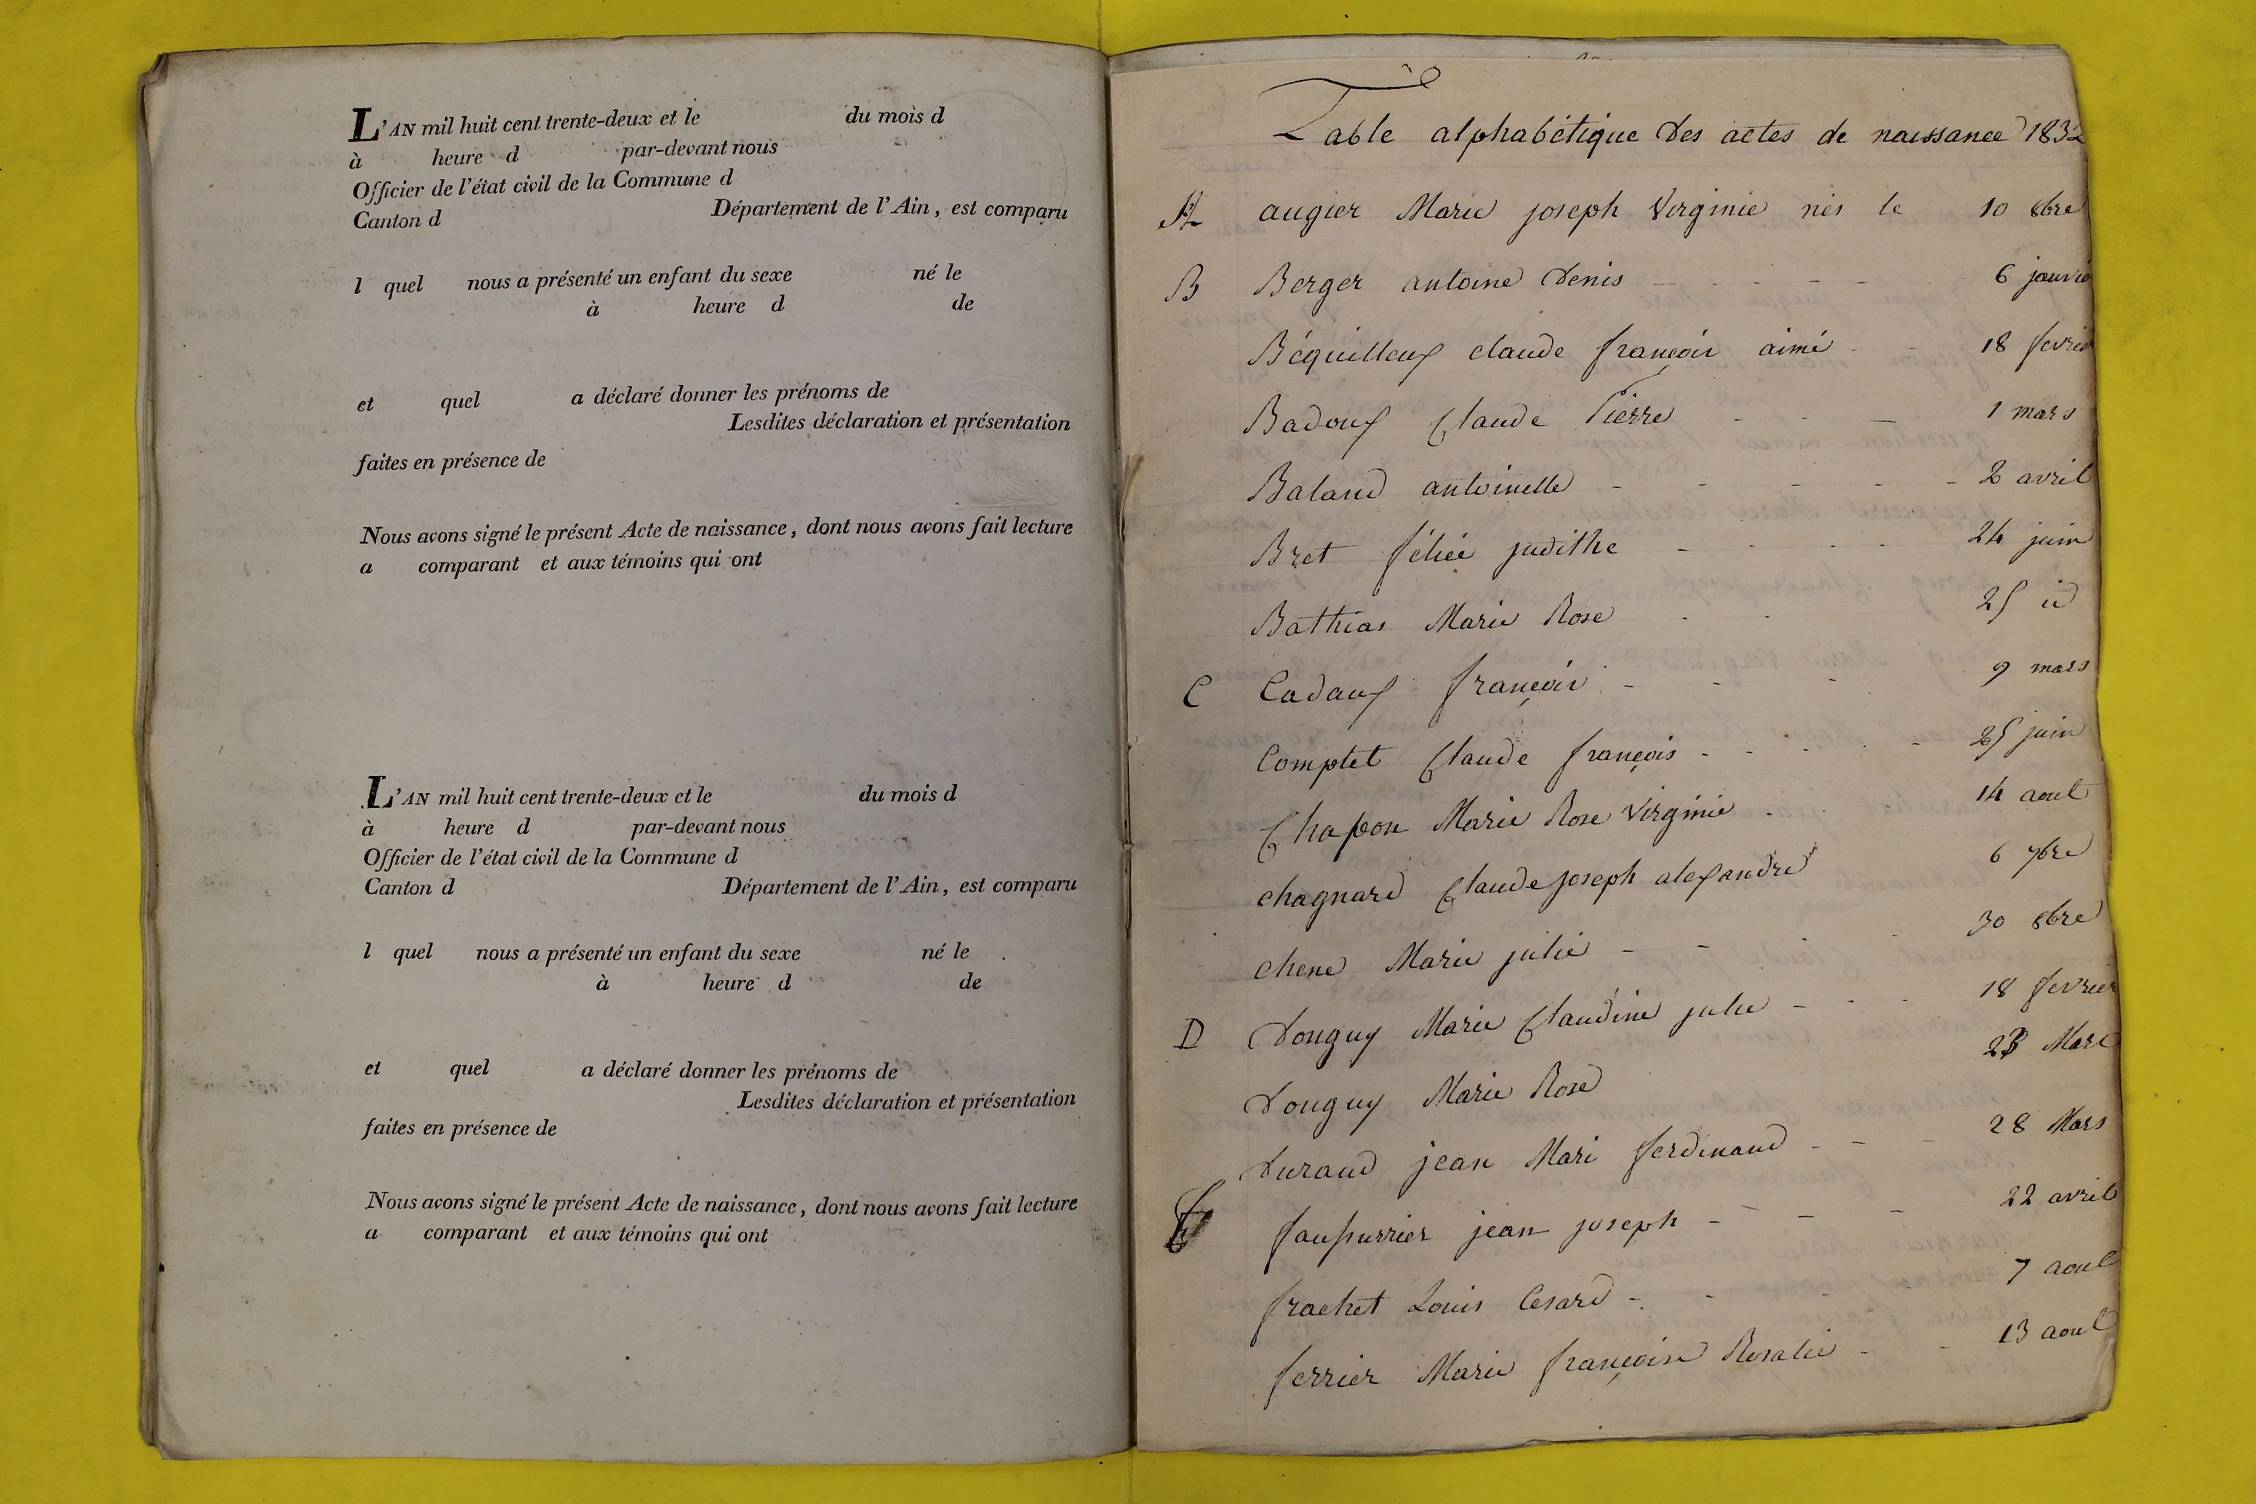 L'AN mil huit cent trente-deux et le du mois d
à heure d par-devant nous
Officier de l'état civil de la Commune d
Canton d Département de l'Ain, est comparu
l quel nous a présenté un enfant du sexe né le
à heure d de
et quel a déclaré donner les prénoms de
Lesdites déclaration et présentation
faites en présence de
Nous avons signé le présent Acte de naissance, dont nous avons fait lecture
a comparant et aux témoins qui ont
L'AN mil huit cent trente-deux et le du mois d
à heure d par-devant nous
Officier de l'état civil de la Commune d
Canton d Département de l'Ain, est comparu
l quel nous a présenté un enfant du sexe né le
à heure d de
et quel a déclaré donner les prénoms de
Lesdites déclaration et présentation
faites en présence de
Nous avons signé le présent Acte de naissance, dont nous avons fait lecture
a comparant et aux témoins qui ont
Table alphabétique des actes de naissance 1832
A augier Marie joseph Virginie nés le 10 8bre
B Berger antoine Denis 6 janvier
Béquilleux claude françois aimé 18 fevrier
Badoux Claude Pierre 1 mars
Baland antoinette 2 avril
Bret féliée judithe 24 juin
Bathias Marie Rose 25 id
C Cadaux françois 9 mars
Comptet Claude françois 25 juin
Chapon Marie Rose Virginie 14 aout
chagnard Claude joseph alexandre 6 7bre
chene Marie julie 30 8bre
D Donguy Marie Claudine julie 18 fevrier
Donguy Marie Rose 23 Mars
Durand jean Mari ferdinand 28 Mars
jean joseph 22 avril
frachet Louis Cesard 7 aout
ferrier Marie françoise Rosalie 13 aout